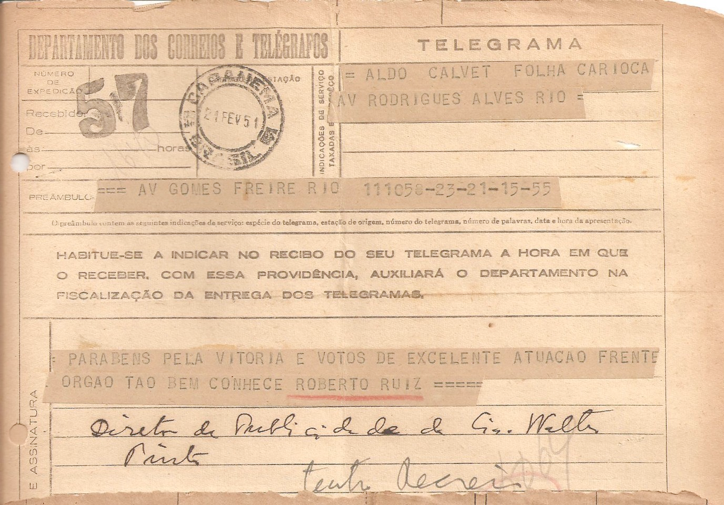 DEPARTAMENTO DOS CORREIOS E TELÉGRAFOS
TELEGRAMA
NÚMERO DE EXPEDIÇÃO
57
Recebido
De
às horas
por
PANEMA
21 FEV 51
BRASIL
INDICAÇÕES DE SERVIÇO
TAXADAS E
= ALDO CALVET FOLHA CARIOCA
AV RODRIGUES ALVES RIO =
PREÂMBULO
=== AV GOMES FREIRE RIO 111058-23-21-15-55
O preâmbulo contem as seguintes indicações de serviço: espécie do telegrama, estação de origem, número do telegrama, número de palavras, data e hora da apresentação.
HABITUE-SE A INDICAR NO RECIBO DO SEU TELEGRAMA A HORA EM QUE
O RECEBER. COM ESSA PROVIDÊNCIA, AUXILIARÁ O DEPARTAMENTO NA
FISCALIZAÇÃO DA ENTREGA DOS TELEGRAMAS.
E ASSINATURA
= PARABENS PELA VITORIA E VOTOS DE EXCELENTE ATUACAO FRENTE
ORGAO TAO BEM CONHECE ROBERTO RUIZ =====
Diretor de Publicidade da Cia. Walter
Pinto
teatro Recreio